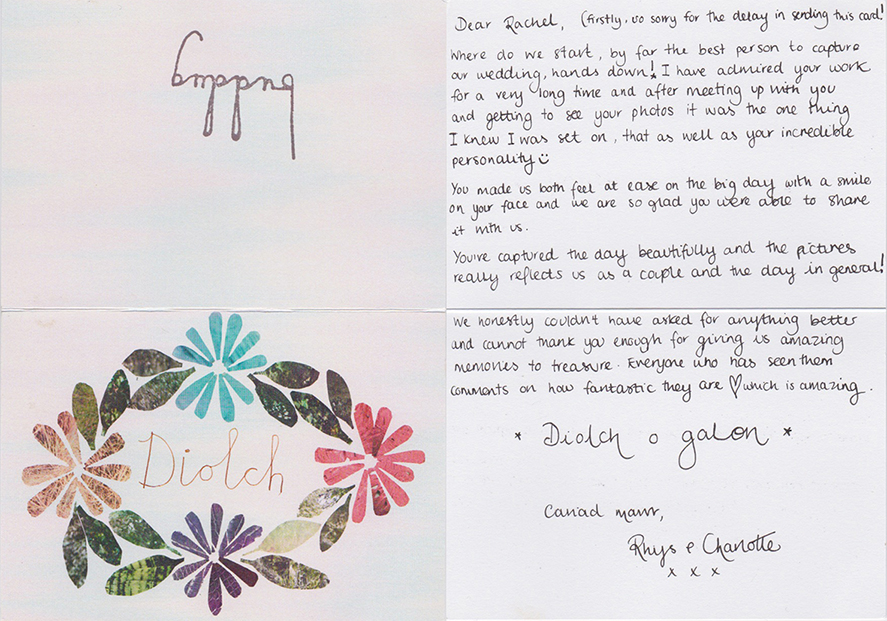 buddug
Diolch
Dear Rachel, (firstly, so sorry for the delay in sending this card!
Where do we start, by far the best person to capture
our wedding, hands down! I have admired your work
for a very long time and after meeting up with you
and getting to see your photos it was the one thing
I knew I was set on, that as well as your incredible
personality
You made us both feel at ease on the big day with a smile
on your face and we are so glad you were able to share
it with us.
You've captured the day beautifully and the pictures
really reflects us as a couple and the day in general!
We honestly couldn't have asked for anything better
and cannot thank you enough for giving us amazing
memories to treasure. Everyone who has seen them
comments on how fantastic they are ♡ which is amazing.
* Diolch o galon *
Cariad mawr,
Rhys & Charlotte
x x x